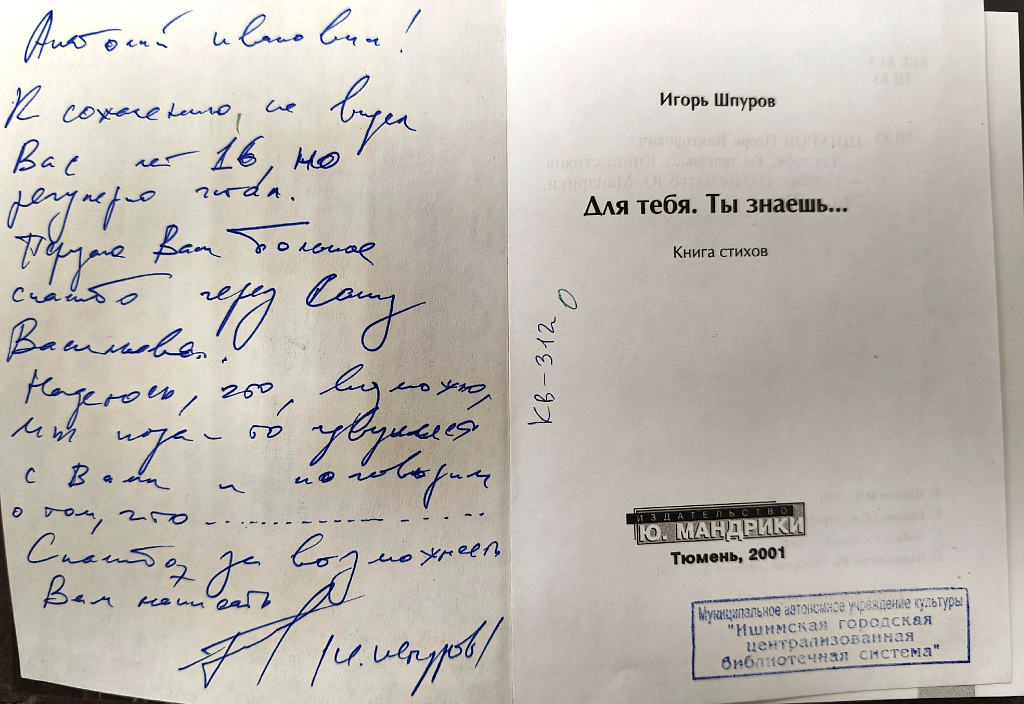 Анатолий Иванович!
К сожалению, не видел
Вас лет 16, но
регулярно читал.
Передаю Вам большое
спасибо через Сашу
Васильева.
Надеюсь, что, возможно,
мы когда-то
с Вами и поговорим
о том, что ....................
Спасибо за возможность
Вам написать
/И. Шпуров/
Игорь Шпуров
Для тебя. Ты знаешь...
Книга стихов
КВ-312
ИЗДАТЕЛЬСТВО
Ю. МАНДРИКИ
Тюмень, 2001
Муниципальное автономное учреждение культуры
"Ишимская городская
централизованная
библиотечная система"